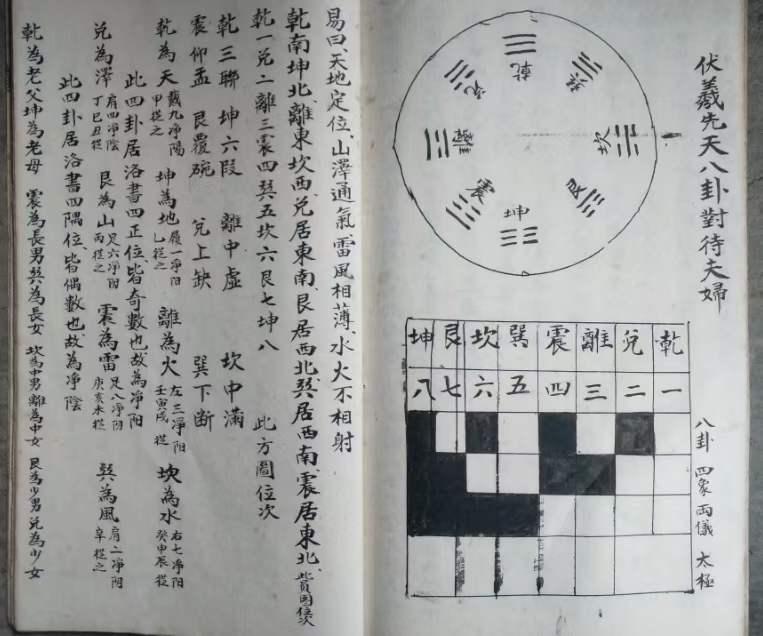 伏羲先天八卦對待夫婦
乾
兌
巽
離
坎
震
艮
坤
乾 兌 離 震 巽 坎 艮 坤
一 二 三 四 五 六 七 八
八卦 四象 両儀 太極
易曰、天地定位、山澤通氣、雷風相薄、水火不相射
乾南坤北、離東坎西、兌居東南、艮居西北、巽居西南、震居東北、此員圖位次
乾一兌二離三震四巽五坎六艮七坤八 此方圖位次
乾三聯 坤六段 離中虛 坎中滿
震仰孟 艮覆碗 兌上缺 巽下断
乾為天 戴九净陽 甲從之 坤為地 履一净阳 乙從之 離為火 左三净阳 壬寅戌從 坎為水 右七净阳 癸申辰從
此四卦居洛書四正位、皆奇數也、故為净阳
兌為澤 肩四净陰 丁巳丑從 艮為山 足六净阴 丙從之 震為雷 足八净阴 庚亥未從 巽為風 肩二净阴 辛從之
此四卦居洛書四隅位、皆偶數也、故為净陰
乾為老父坤為老母 震為長男巽為長女 坎為中男離為中女 艮為少男兌為少女